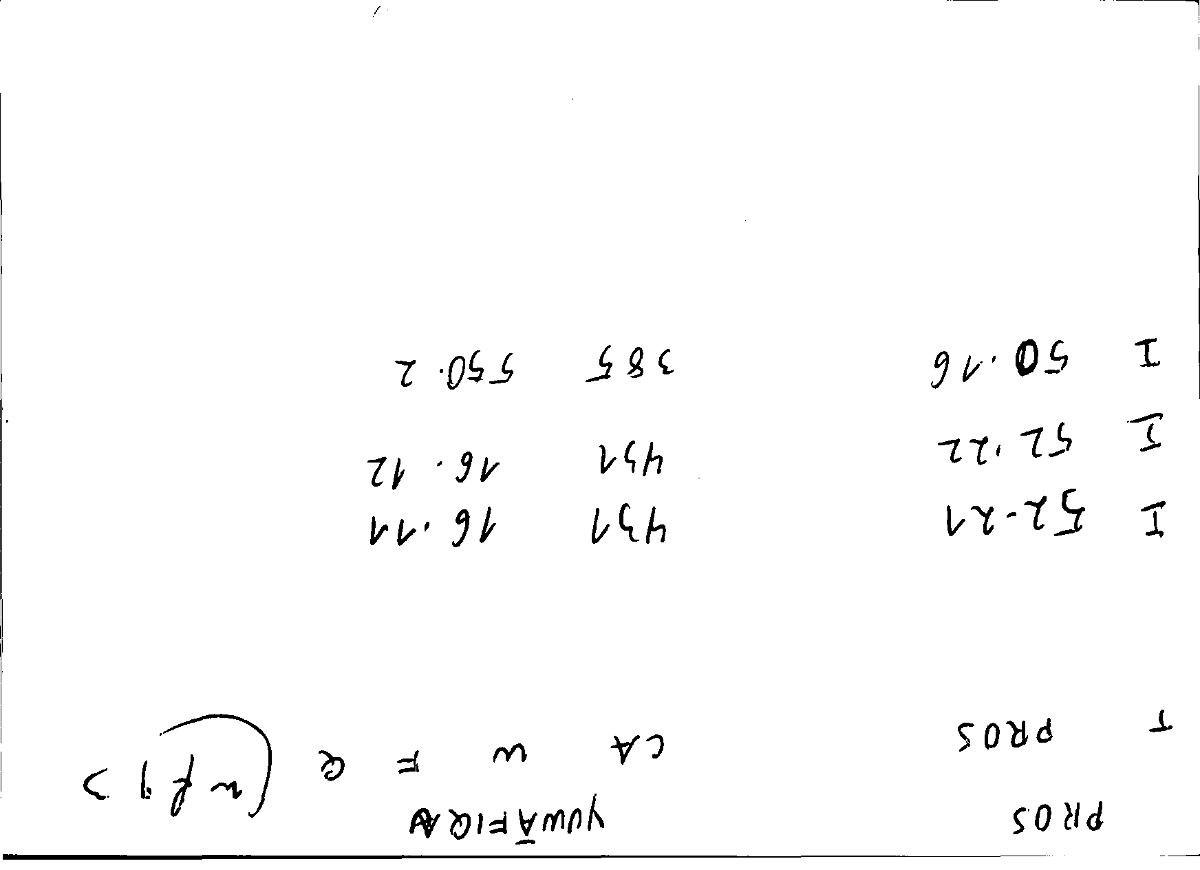 PROS YUWĀFIQA
T PROS CA W F Q
I 52.21 431 16.11
I 52.22 431 16.12
I 50.16 385 550.2